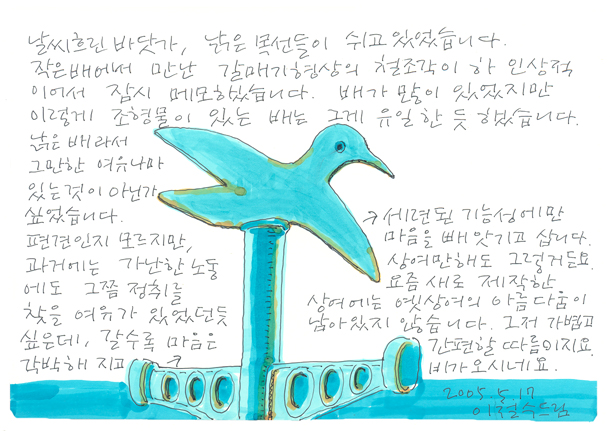 날씨흐린 바닷가, 낡은 목선들이 쉬고있었습니다.
작은배에서 만난 갈매기형상의 철조각이 하 인상적
이어서 잠시 메모하였습니다. 배가 많이 있었지만
이렇게 조형물이 있는 배는 그게 유일한 듯 했습니다.
낡은 배라서
그만한 여유나마
있는것이 아닌가
싶었습니다.
편견인지 모르지만,
과거에는 가난한 노동
에도 그쯤 정취를
찾을 여유가 있었던듯
싶은데, 갈수록 마음은
각박해 지고
세련된 기능성에만
마음을 빼앗기고 삽니다.
상여만해도 그렇거든요.
요즘 새로 제작한
상여에는 옛상여의 아름다움이
남아있지 않습니다. 그저 가볍고
간편할 따름이지요.
비가오시네요.
2005 5 17
이철수드림